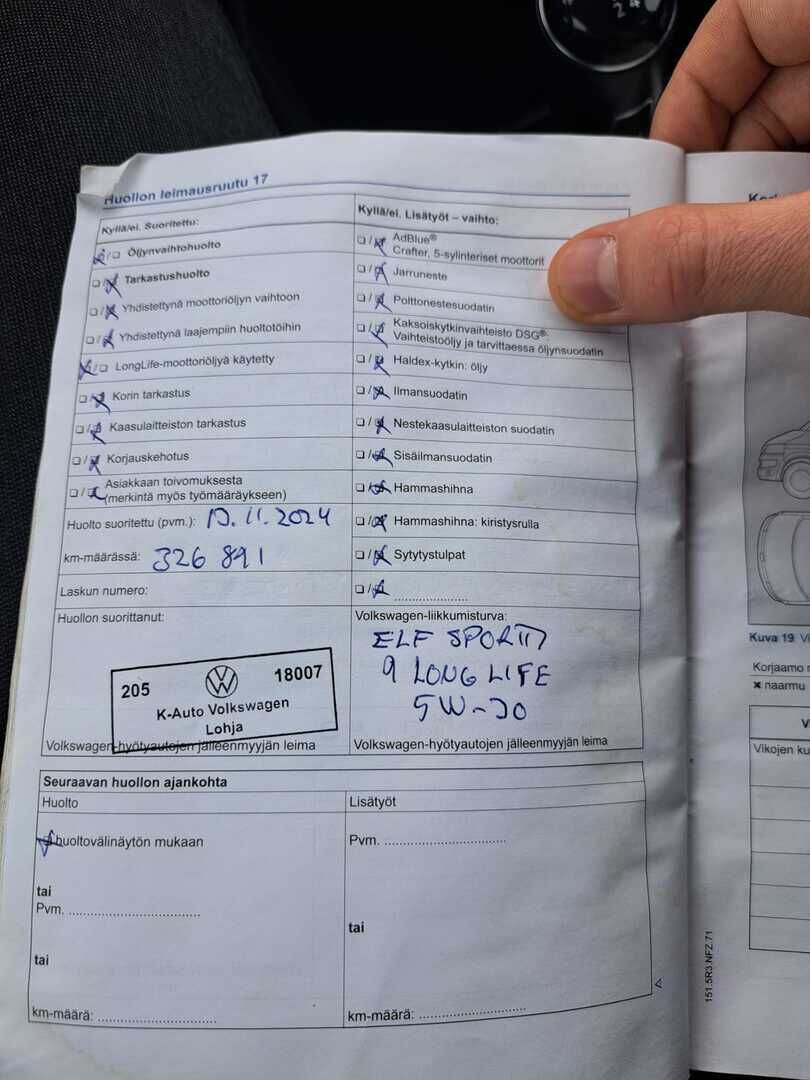 Huollon leimausruutu 17
Kyllä/ei. Suoritettu:
Öljynvaihtohuolto
Tarkastushuolto
Yhdistettynä moottoriöljyn vaihtoon
Yhdistettynä laajempiin huoltotöihin
LongLife-moottoriöljyä käytetty
Korin tarkastus
Kaasulaitteiston tarkastus
Korjauskehotus
Asiakkaan toivomuksesta
(merkintä myös työmääräykseen)
Huolto suoritettu (pvm.): 11.2024
km-määrässä: 326 891
Laskun numero:
Huollon suorittanut:
205 18007
K-Auto Volkswagen
Lohja
Volkswagen-hyötyautojen jälleenmyyjän leima
Kyllä/ei. Lisätyöt – vaihto:
AdBlue®
Crafter, 5-sylinteriset moottorit
Jarruneste
Polttonestesuodatin
Kaksoiskytkinvaihteisto DSG®:
Vaihteistoöljy ja tarvittaessa öljynsuodatin
Haldex-kytkin: öljy
Ilmansuodatin
Nestekaasulaitteiston suodatin
Sisäilmansuodatin
Hammashihna
Hammashihna: kiristysrulla
Sytytystulpat
Volkswagen-liikkumisturva:
ELF
9 LONG LIFE
5W-30
Volkswagen-hyötyautojen jälleenmyyjän leima
Seuraavan huollon ajankohta
Huolto
huoltovälinäytön mukaan
tai
Pvm.
tai
km-määrä:
Lisätyöt
Pvm.
tai
km-määrä:
151.5R3.NFZ.71
Kuva 19
Korjaamo
✖ naarmu
Vikojen